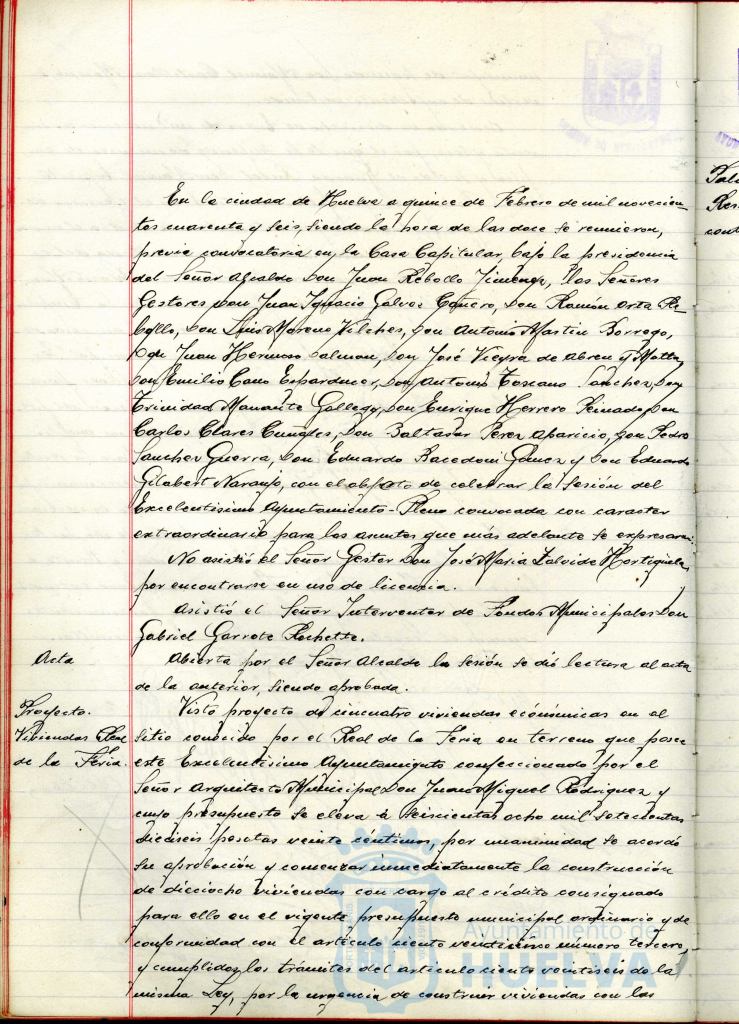 En la ciudad de Huelva a quince de Febrero de mil novecien-
tos cuarenta y seis, siendo la hora de las doce se reunieron,
previa convocatoria en la Casa Capitular, bajo la presidencia
del Señor Alcalde Don Juan Rebollo Jimenez, los Señores
Gestores Don Juan Ignacio Galvez Cañero, Don Ramón Orta Re-
bollo, Don Luis Moreno Vilches, Don Antonio Martin Borrego,
Don Juan Hermoso Dalmau, Don José Vieyra de Abreu y Motta,
Don Emilio Cano Don Antonio Toscano Sanchez, Don
Trinidad Gallego, Don Enrique Herrero Peinado Don
Carlos Clares Don Baltasar Perez Aparicio, Don Pedro
Sanchez Guerra, Don Eduardo Racedoni Gamez y Don Eduardo
Gilabert Naranjo, con el objeto de celebrar la Sesión del
Excelentisimo Ayuntamiento-Pleno convocada con caracter
extraordinario para los asuntos que más adelante se expresaran.
No asistió el Señor Gestor Don José Maria Zalvide Hortigüela
por encontrarse en uso de licencia.
Asistió el Señor Interventor de Fondos Municipales Don
Gabriel Garrote Rochette.
Acta
Abierta por el Señor Alcalde la Sesión se dió lectura al acta
de la anterior, siendo aprobada.
Proyecto.
Viviendas Real
de la Feria.
Visto proyecto de viviendas económicas en el
sitio conocido por el Real de la Feria en terreno que posee
este Excelentisimo Ayuntamiento confeccionado por el
Señor Arquitecto Municipal Don Juan Miguel Rodriguez y
cuyo presupuesto se eleva a seiscientas ocho mil setecientas
dieciseis pesetas veinte céntimos, por unanimidad se acordó
su aprobación y comenzar inmediatamente la construcción
de dieciocho viviendas con cargo al crédito consignado
para ello en el vigente presupuesto municipal ordinario y de
conformidad con el articulo ciento numero tercero
y cumplidos los trámites del articulo ciento veintiseis de la
misma Ley, por la urgencia de construir viviendas con las
Ayuntamiento de
HUELVA